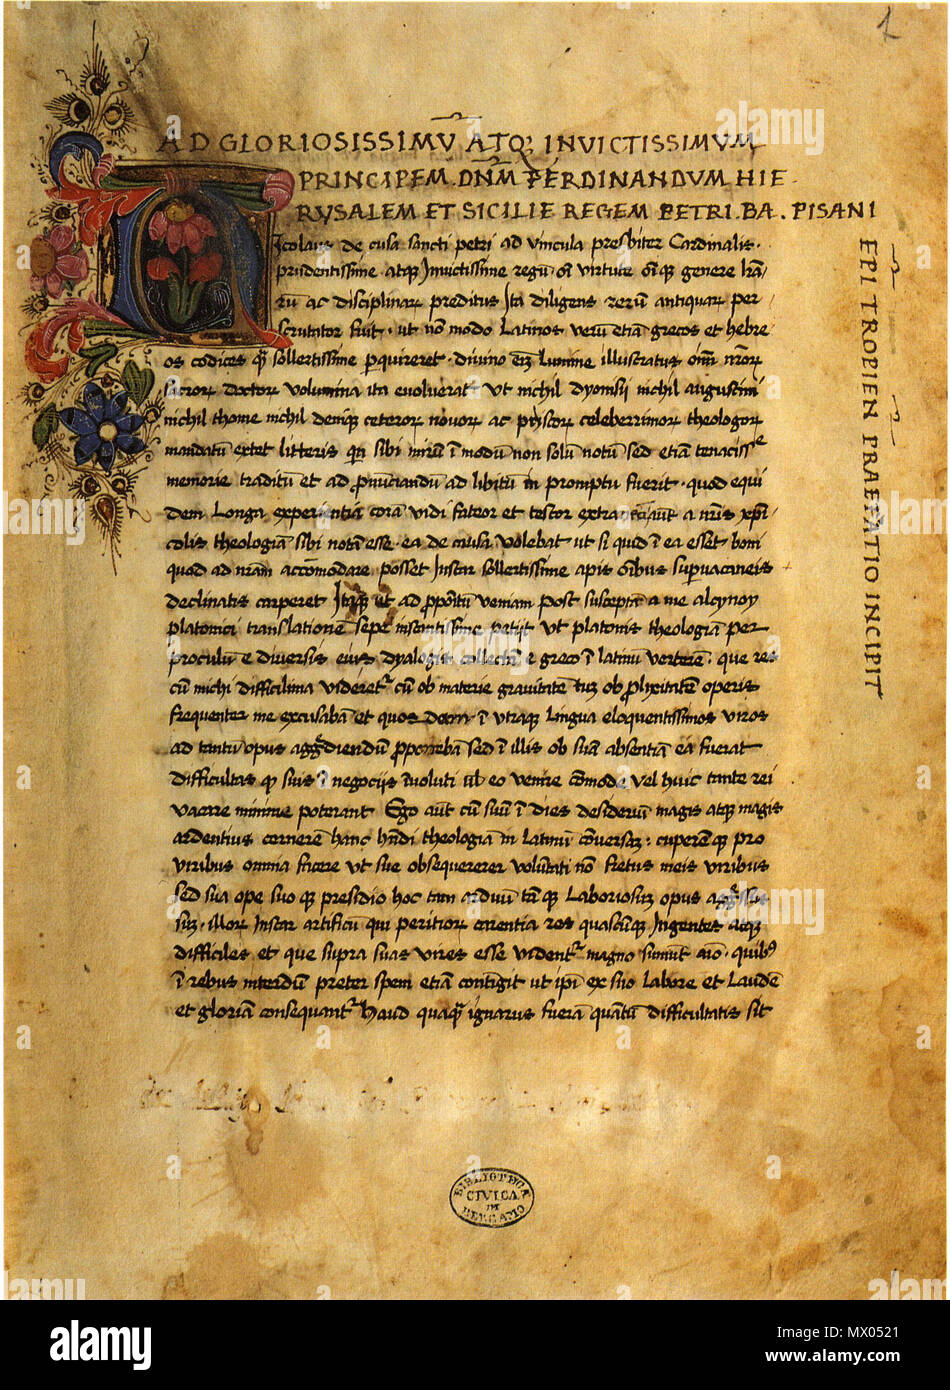 1
AD GLORIOSISSIMṼ ATQꝫ INVICTISSIMVM
PRINCIPEM. DN̄M FERDINANDVM HIE
RVSALEM ET SICILIE REGEM PETRI. BA. PISANI
EPI TROPIEN PRAEFATIO INCIPIT
Nicolaus de cusa sancti petri ad vincula presbiter Cardinalis.
prudentissime atqꝫ Invictissime regū. oī virtute oīqꝫ genere lr̄a-
rū ac disciplinaꝝ preditus Ita diligens rerū antiquaꝝ per
scrutator fuit. ut nō modo Latinos verū etiā grecos et hebre
os codices qꝫ sollertissime ꝑquireret. divino Lumine illustratus
sacroꝝ doctoꝝ volumina ita evoluerat ut nichil dyonisii nichil augustini
nichil thome nichil deniqꝫ ceteroꝝ novoꝝ ac pͥscoꝝ celeberrimoꝝ theologoꝝ
mandatū extet litteris qn̄ sibi mirū ī modū non solū notū sed etiā tenacissᵉ
memorie traditū et ad ꝓnūciandū ad libitū in promptu fuerit. quod equi
dem Longa experientia corā vidi fateor et testor extra a nr̄is xp̄i
colis theologiā sibi notā esse. ea de causa volebat ut si quid ī ea esset boni
quod ad nr̄am accōmodare posset Instar sollertissime apis oībus suꝑvacaneis
declinatis carperet Itaqꝫ ut ad ꝓpositū veniam post susceptā a me alcynoy
platonici translationē sepe instantissime petijt ut platonis theologiā per
proculū e diversis eius dyalogis collectā e greco ī latinū verterē. que res
cū michi difficilima videretᷣ cū ob materie gravitatē tū ob ꝓlixitatē operis
frequenter me excusabā et quosdam ī utraqꝫ lingua eloquentissimos viros
ad tantū opus aggᷣdiendū ꝓponebā sed ī illis ob suā absentiā ea fuerat
difficultas qꝫ suis ī negocijs īvoluti vl̄ eo venire cōmode vel huic tante rei
vacare minime poterant Ego aūt cū suū ī dies desideriū magis atqꝫ magis
ardentius cernerē hanc hn̄di theologiā in Latinū cōversā. cuperēqꝫ pro
viribus omnia facere ut sue obsequererer volūtati nō fretus meis viribus
sed sua ope suo qꝫ presidio hoc tam arduū tāqꝫ Laboriosū opus aggᷣssus
sū. illoꝝ Instar artificū qui peritioꝝ carentia res quascūqꝫ Ingentes atqꝫ
difficiles et que supra suas vires esse videntᷣ magno sumūt aīo. quibꝰ
ī rebus interdū preter spem etiā contīgit ut ipi ex suo labore et Laudē
et gloriā consequantᷣ haud quaqꝫ ignarus fuerā quātū difficultatis sit
BIBLIOTECA
CIVICA
DI
BERGAMO
alamy
Image ID: MX0521
www.alamy.com